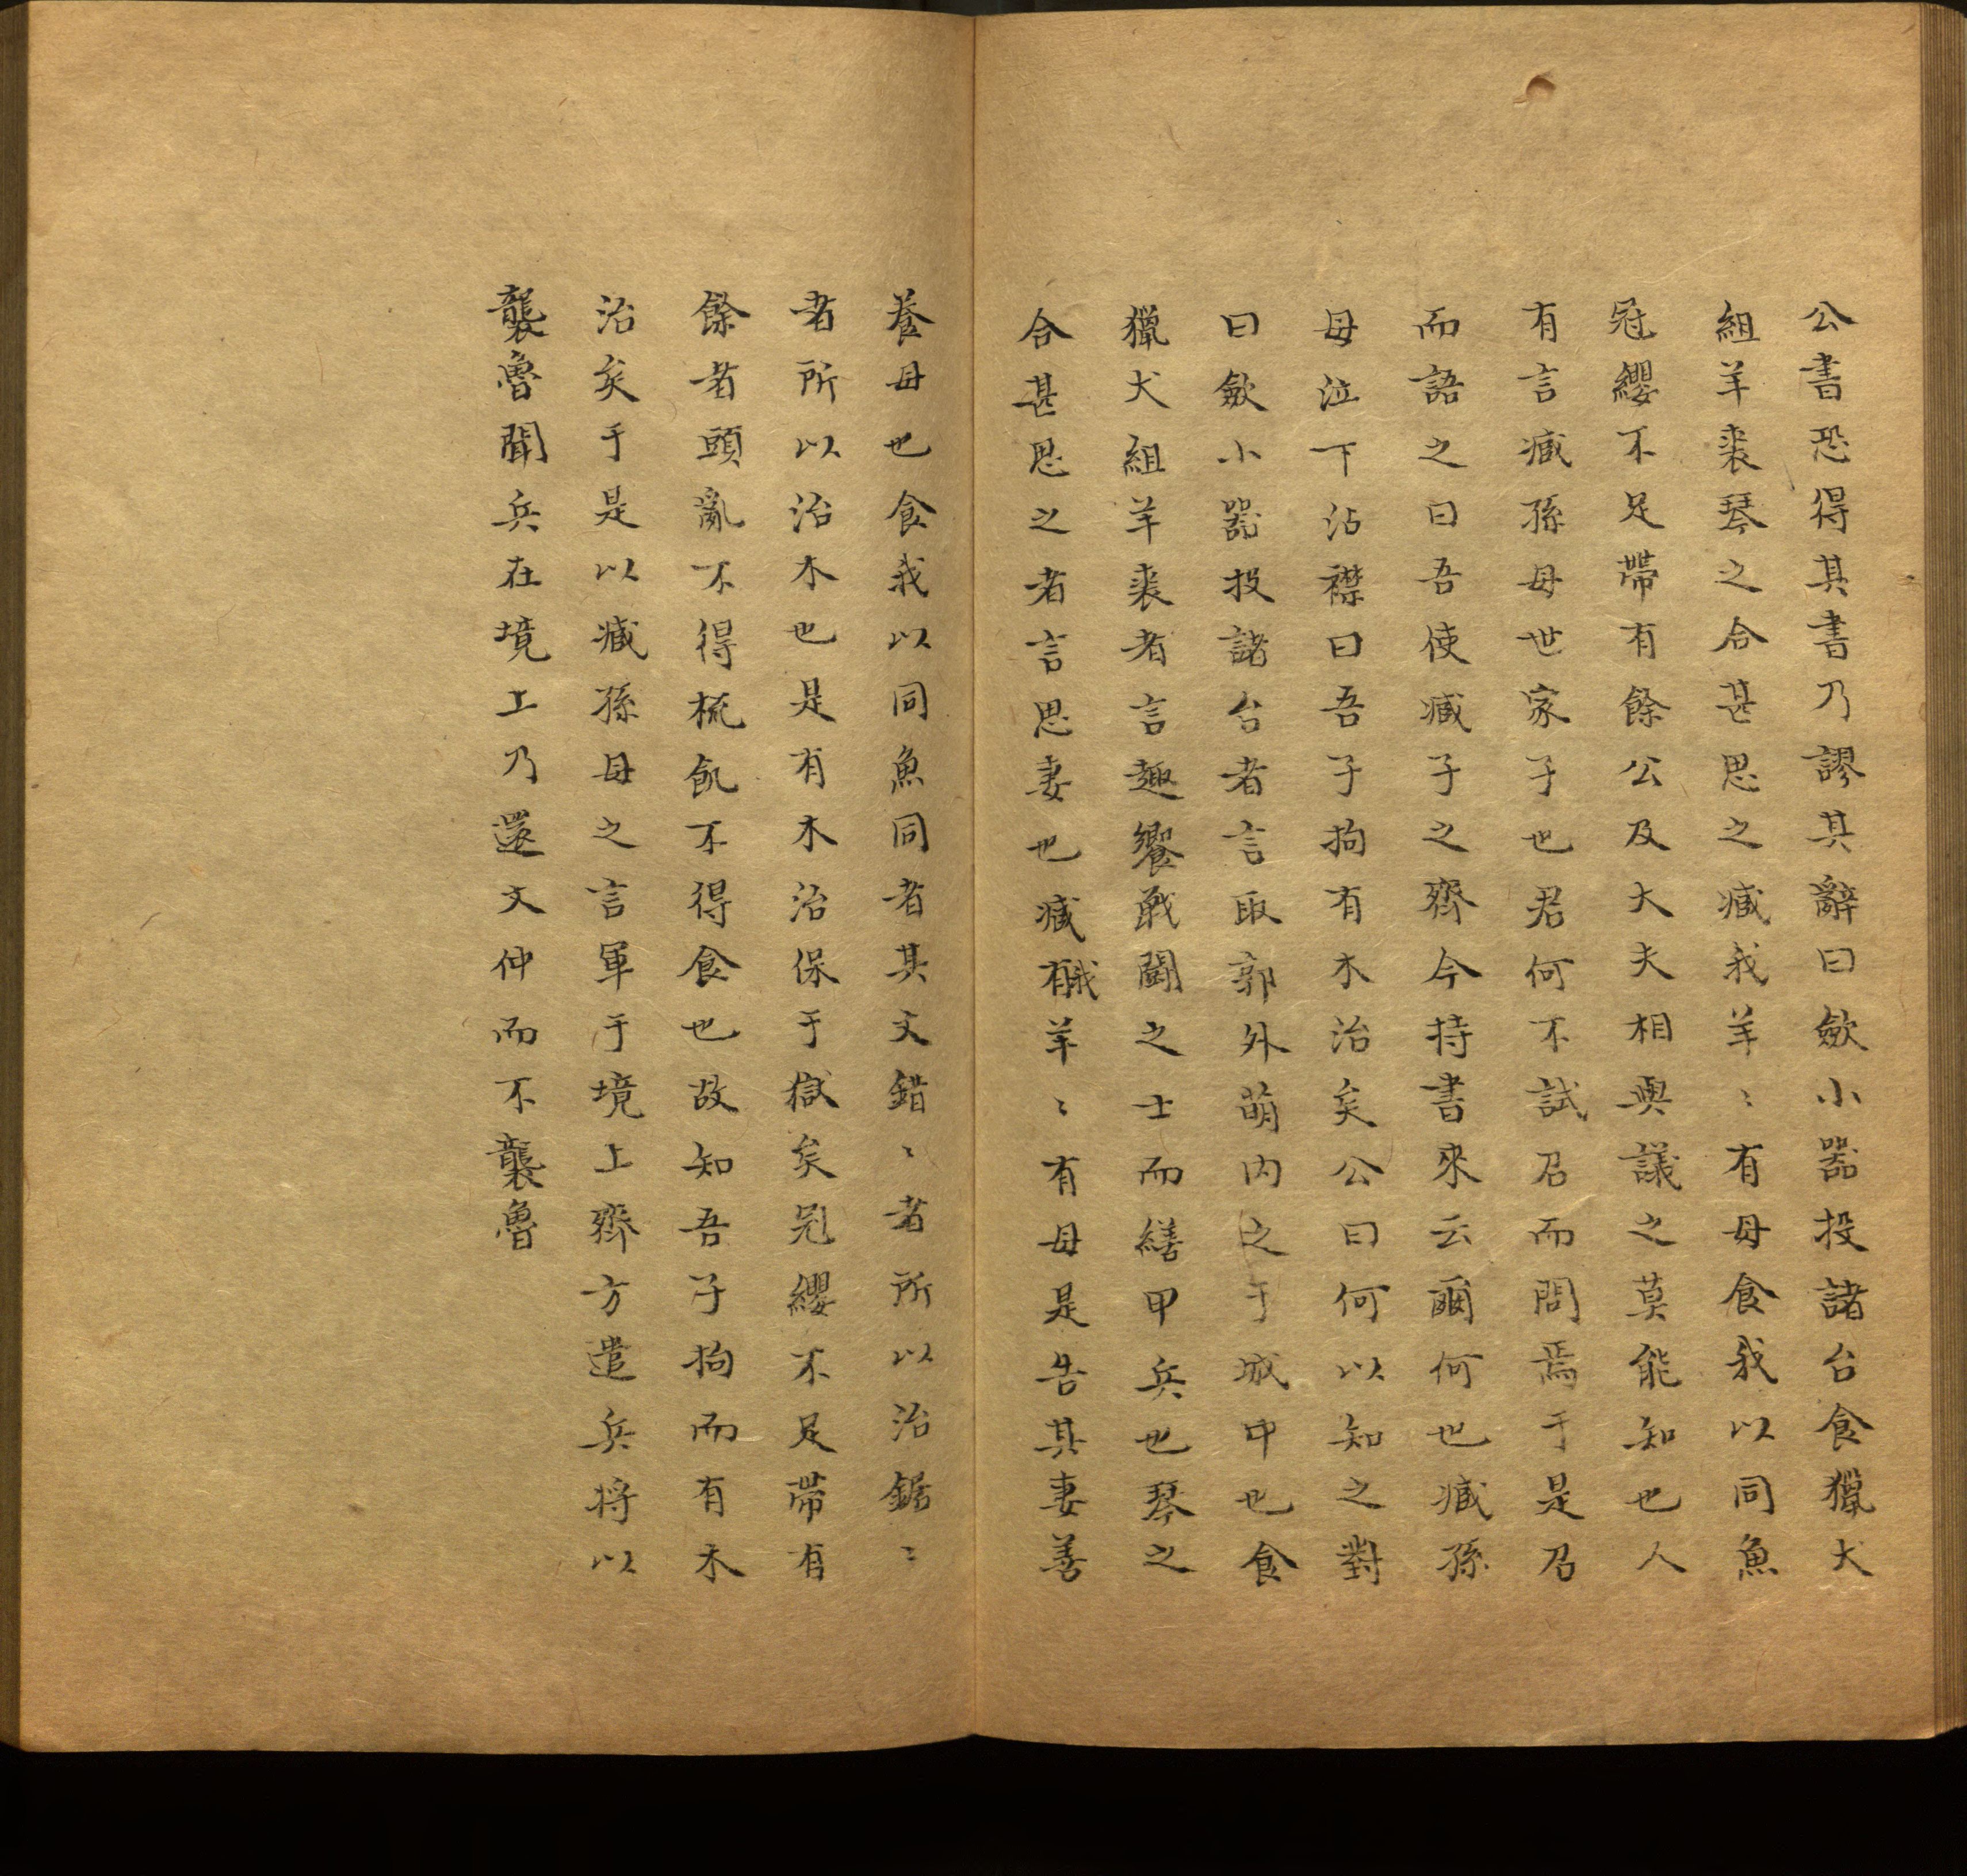 公書恐得其書乃謬其辭曰斂小器投諸台食獵犬
組羊裘琴之合甚思之臧我羊〻有母食我以同魚
冠纓不足帶有餘公及大夫相與議之莫能知也人
有言臧孫母世家子也君何不試召而問焉于是召
而語之曰吾使臧子之齊今持書來云爾何也臧孫
母泣下沾襟曰吾子拘有木治矣公曰何以知之對
曰斂小器投諸台者言取郭外萌內之于城中也食
獵犬組羊裘者言趣饗戰鬬之士而繕甲兵也琴之
合甚思之者言思妻也臧羊〻有母是告其妻善
養母也食我以同魚同者其文錯〻者所以治鋸〻
者所以治木也是有木治保于獄矣冠纓不足帶有
餘者頭亂不得梳飢不得食也故知吾子拘而有木
治矣于是以臧孫母之言軍于境上齊方遣兵將以
襲魯聞兵在境上乃還文仲而不襲魯